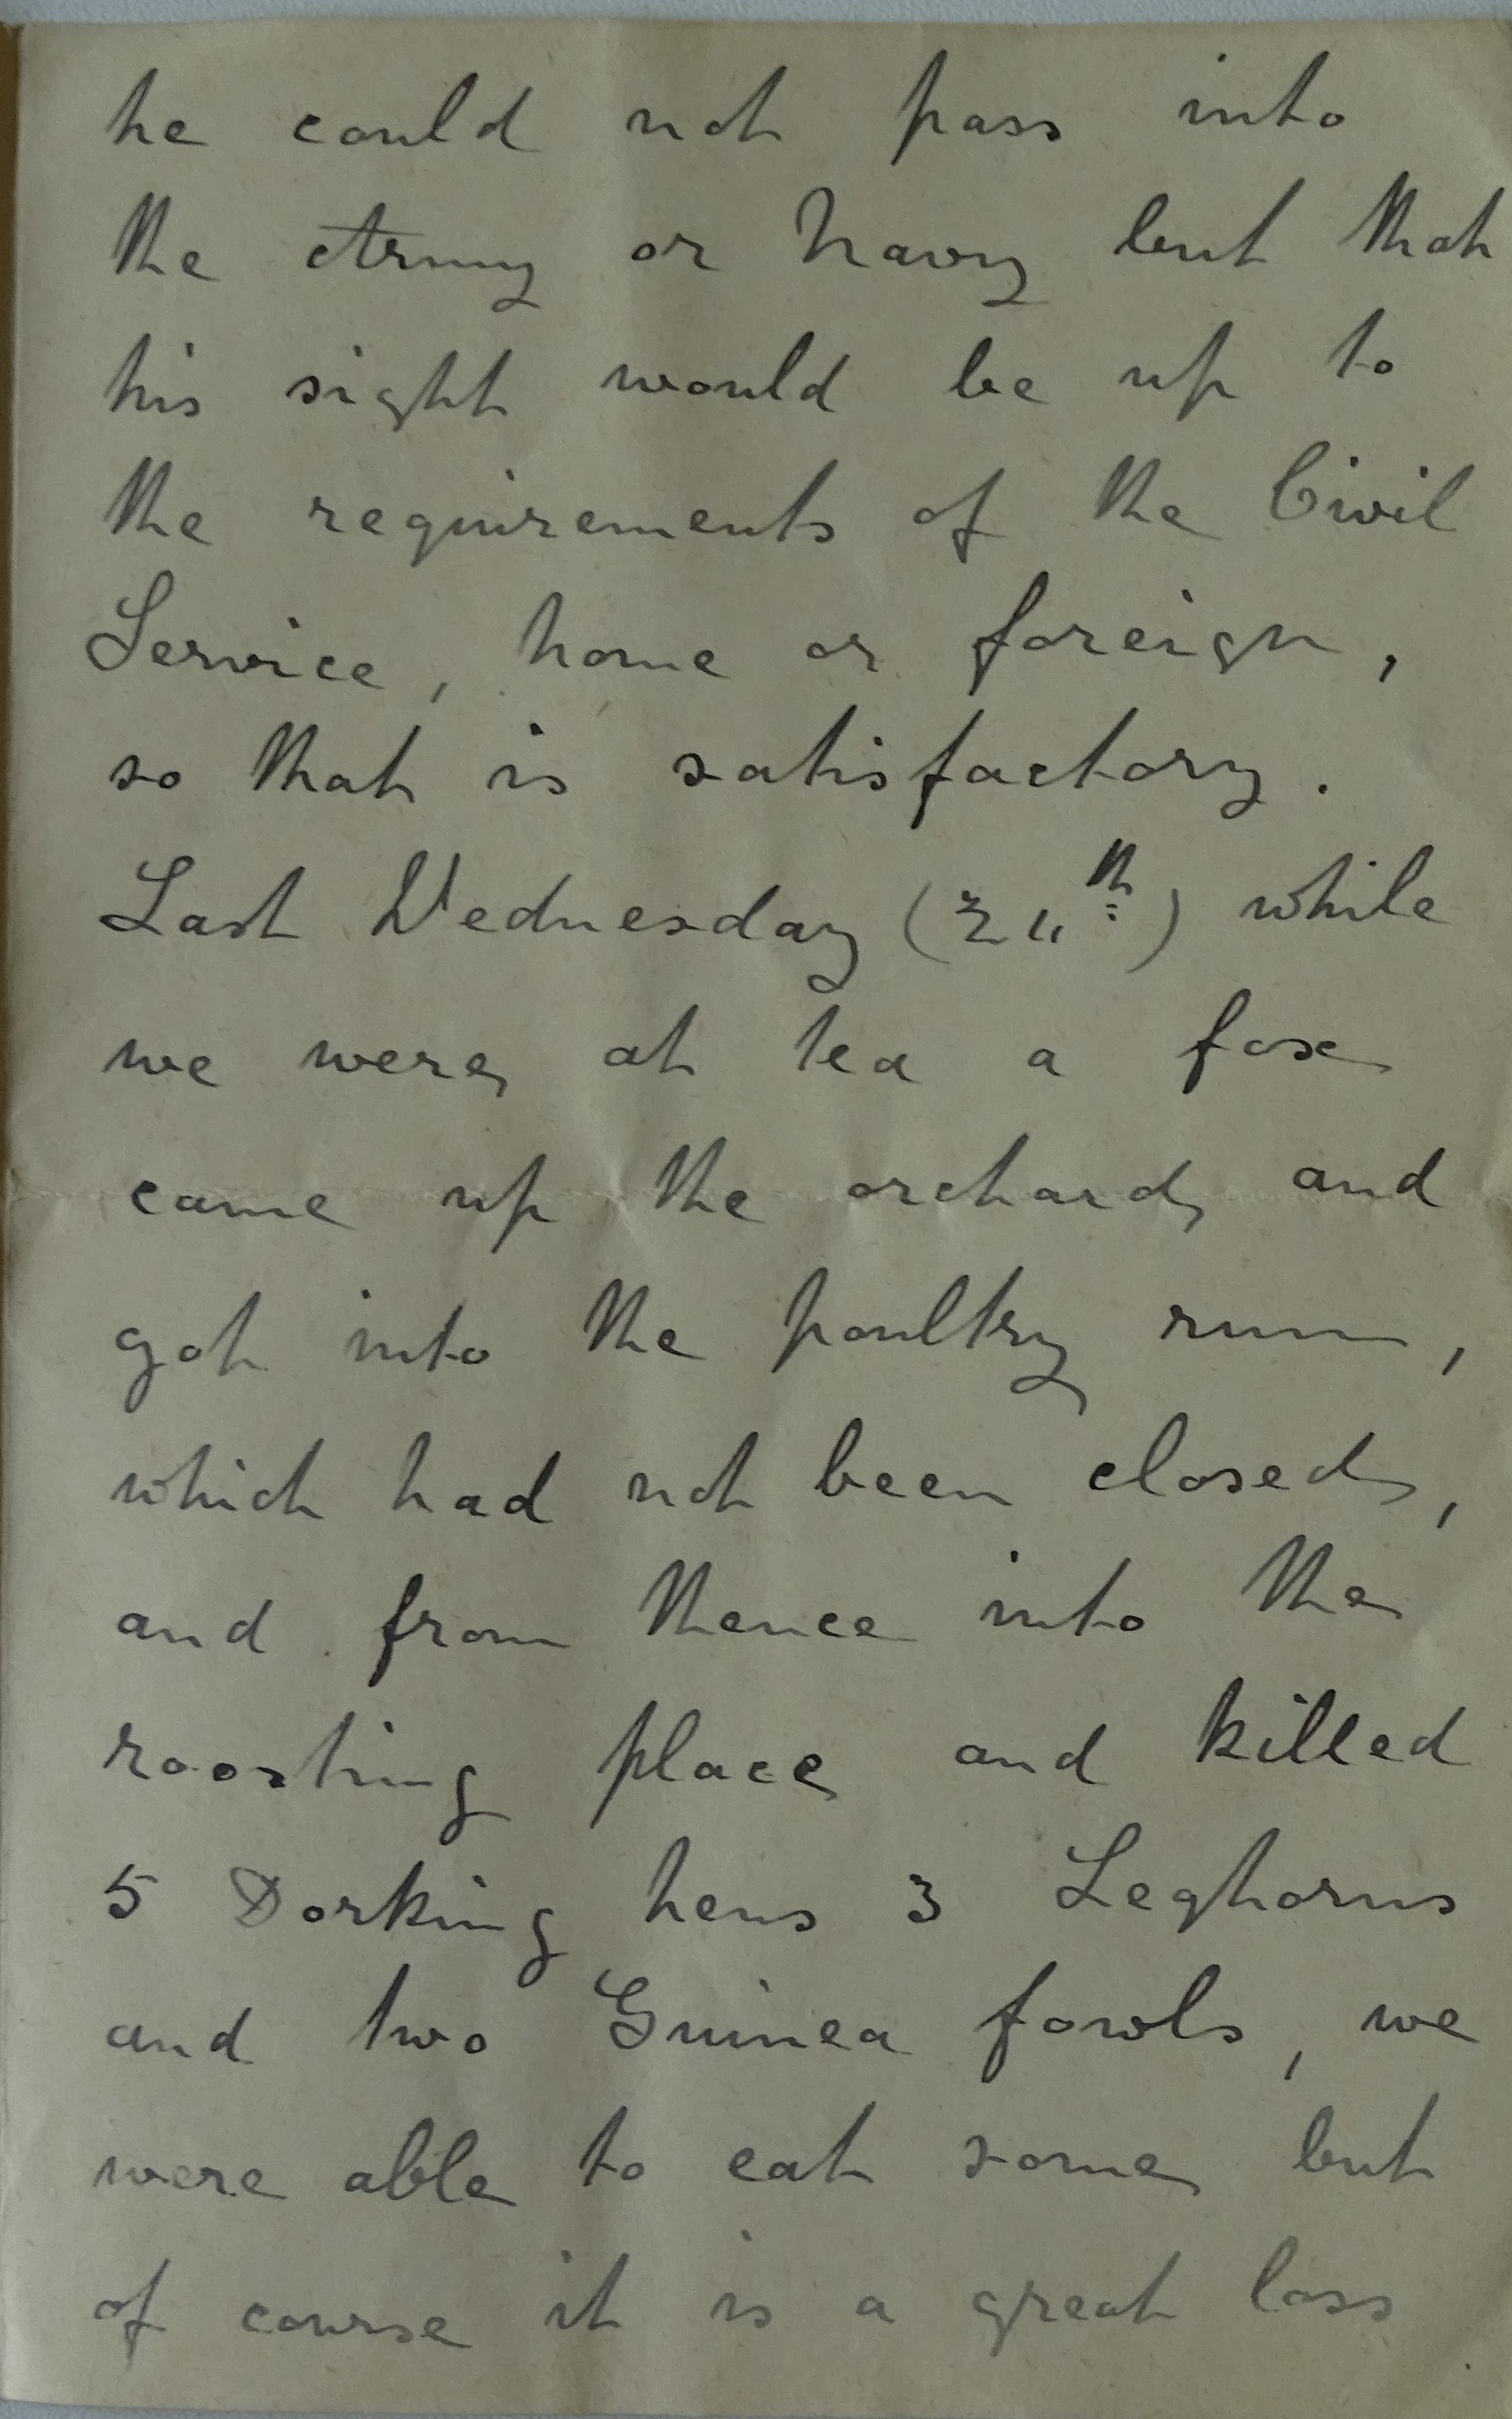 he could not pass into
the Army or Navy but that
his sight would be up to
the requirements of the Civil
Service, home or foreign,
so that is satisfactory.
Last Wednesday (24th) while
we were at tea a fox
came up the orchard and
got into the poultry run,
which had not been closed,
and from thence into the
roosting place and killed
5 Dorking hens 3 Leghorns
and two Guinea fowls, we
were able to eat some but
of course it is a great loss